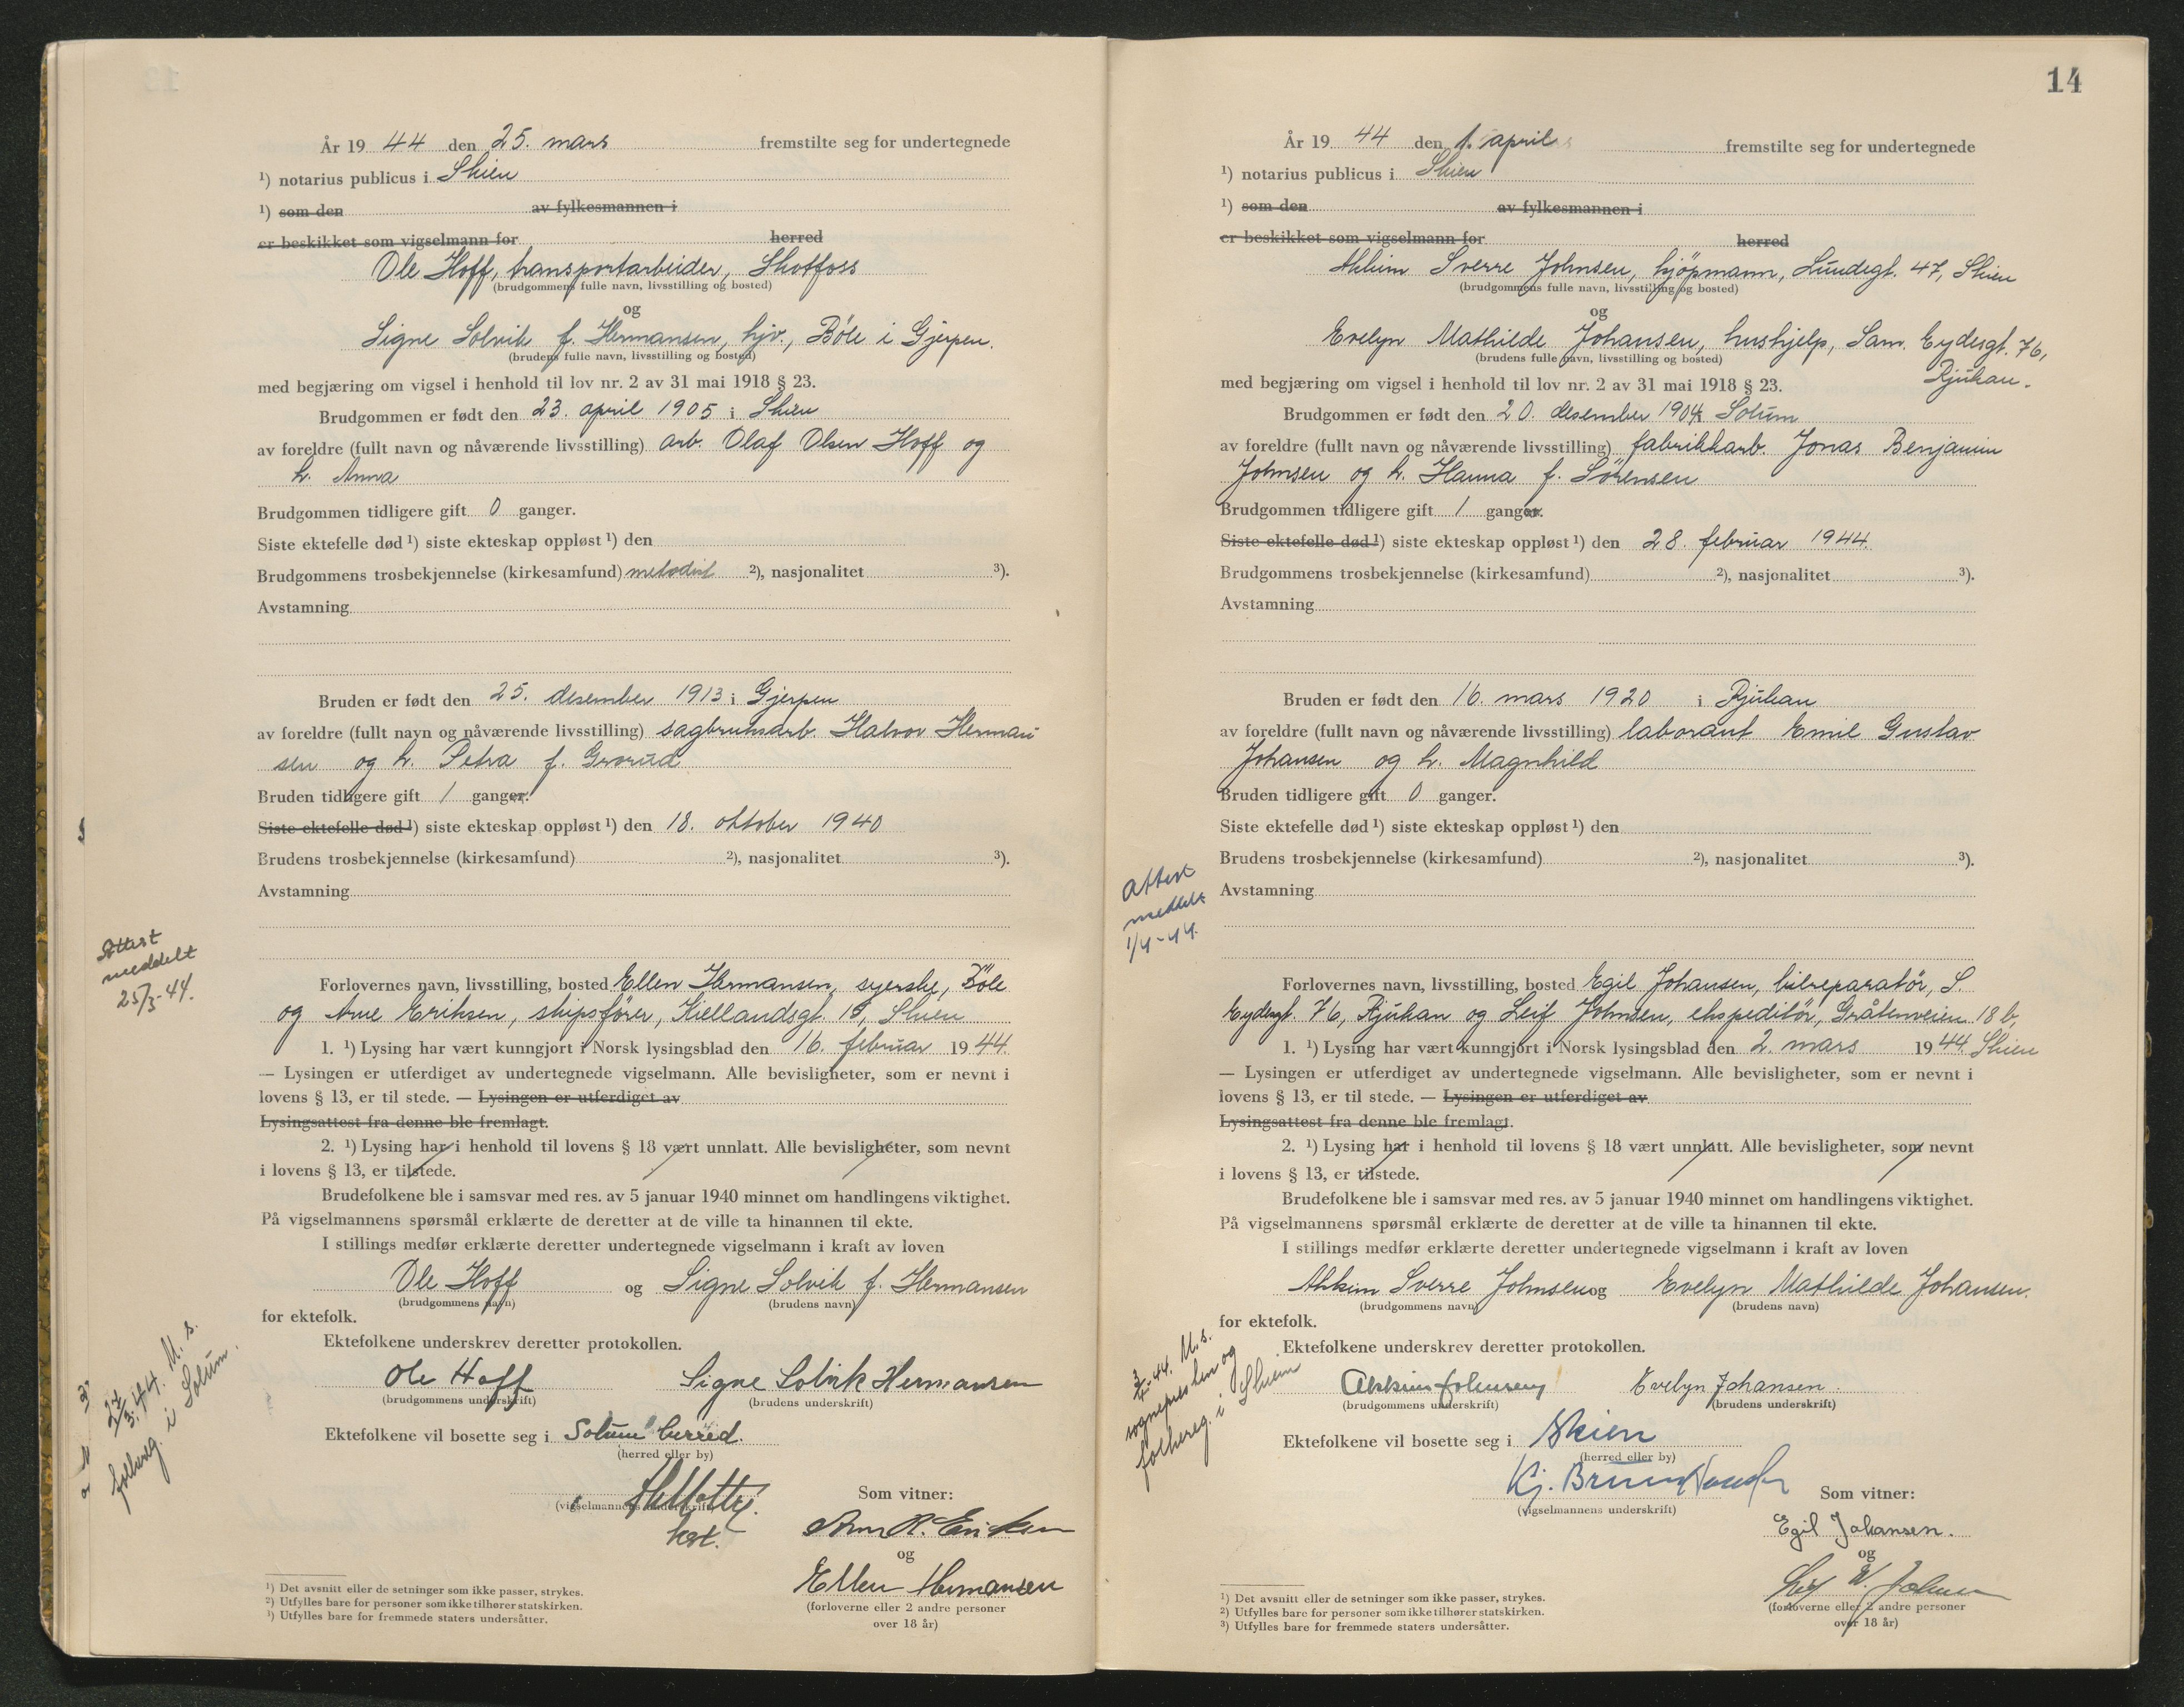 År 19 44 den 25. mars fremstilte seg for undertegnede
¹) notarius publicus i Skien
¹) som den av fylkesmannen i
er beskikket som vigselmann for herred
Ole Hoff, transportarbeider, Skotfoss
(brudgommens fulle navn, livsstilling og bosted)
og
Signe Solvik f. Hermansen, hjv., Böle i Gjerpen.
(brudens fulle navn, livsstilling og bosted)
med begjæring om vigsel i henhold til lov nr. 2 av 31 mai 1918 § 23.
Brudgommen er født den 23. april 1905 i Skien
av foreldre (fullt navn og nåværende livsstilling) arb. Olaf Olsen Hoff og
h. Anna
Brudgommen tidligere gift 0 ganger.
Siste ektefelle død ¹) siste ekteskap oppløst ¹) den
Brudgommens trosbekjennelse (kirkesamfund) metodist ²), nasjonalitet ³).
Avstamning
Bruden er født den 25. desember 1913 i Gjerpen
av foreldre (fullt navn og nåværende livsstilling) sagbruksarb. Halvor Herman-
sen og h. Petra f. Grorud
Bruden tidligere gift 1 ganger.
Siste ektefelle død ¹) siste ekteskap oppløst ¹) den 18. oktober 1940
Brudens trosbekjennelse (kirkesamfund) ²), nasjonalitet ³).
Avstamning
Attest
meddelt
25/3-44.
Forlovernes navn, livsstilling, bosted Ellen Hermansen, syerske, Böle
og Arne Eriksen, skipsförer, Kiellandsgt. 19, Skien
1. ¹) Lysing har vært kunngjort i Norsk lysingsblad den 16. februar 19 44.
— Lysingen er utferdiget av undertegnede vigselmann. Alle bevisligheter, som er nevnt i
lovens § 13, er til stede. — Lysingen er utferdiget av
Lysingsattest fra denne ble fremlagt.
2. ¹) Lysing har i henhold til lovens § 18 vært unnlatt. Alle bevisligheter, som nevnt
i lovens § 13, er tilstede.
Brudefolkene ble i samsvar med res. av 5 januar 1940 minnet om handlingens viktighet.
På vigselmannens spørsmål erklærte de deretter at de ville ta hinannen til ekte.
I stillings medfør erklærte deretter undertegnede vigselmann i kraft av loven
Ole Hoff og Signe Solvik f. Hermansen
(brudgommens navn) (brudens navn)
for ektefolk.
Ektefolkene underskrev deretter protokollen.
Ole Hoff Signe Solvik Hermansen
(brudgommens underskrift) (brudens underskrift)
27/3.44. M. s.
folkereg. i Solum.
Ektefolkene vil bosette seg i Solum herred.
(herred eller by)
(vigselmannens underskrift)
kst.
Som vitner:
Arne R. Eriksen
og
Ellen Hermansen
(forloverne eller 2 andre personer
over 18 år)
¹) Det avsnitt eller de setninger som ikke passer, strykes.
²) Utfylles bare for personer som ikke tilhører statskirken.
³) Utfylles bare for fremmede staters undersåtter.
14
År 19 44 den 1. april fremstilte seg for undertegnede
¹) notarius publicus i Skien
¹) som den av fylkesmannen i
er beskikket som vigselmann for herred
Ahkim Sverre Johnsen, kjöpmann, Lundegt. 47, Skien
(brudgommens fulle navn, livsstilling og bosted)
og
Evelyn Mathilde Johansen, hushjelp, Sam. Eydesgt. 76,
Rjukan.
(brudens fulle navn, livsstilling og bosted)
med begjæring om vigsel i henhold til lov nr. 2 av 31 mai 1918 § 23.
Brudgommen er født den 20. desember 1904 i Solum
av foreldre (fullt navn og nåværende livsstilling) fabrikkarb. Jonas Benjamin
Johnsen og h. Hanna f. Sörensen
Brudgommen tidligere gift 1 ganger.
Siste ektefelle død ¹) siste ekteskap oppløst ¹) den 28. februar 1944.
Brudgommens trosbekjennelse (kirkesamfund) ²), nasjonalitet ³).
Avstamning
Bruden er født den 16. mars 1920 i Rjukan
av foreldre (fullt navn og nåværende livsstilling) laborant Emil Gustav
Johansen og h. Magnhild
Bruden tidligere gift 0 ganger.
Siste ektefelle død ¹) siste ekteskap oppløst ¹) den
Brudens trosbekjennelse (kirkesamfund) ²), nasjonalitet ³).
Avstamning
Attest
meddelt
1/4-44.
Forlovernes navn, livsstilling, bosted Egil Johansen, bilreparatör, S.
Eydesgt. 76, Rjukan og Leif Johnsen, ekspeditör, Gråtenveien 18 b,
Skien
1. ¹) Lysing har vært kunngjort i Norsk lysingsblad den 2. mars 19 44.
— Lysingen er utferdiget av undertegnede vigselmann. Alle bevisligheter, som er nevnt i
lovens § 13, er til stede. — Lysingen er utferdiget av
Lysingsattest fra denne ble fremlagt.
2. ¹) Lysing har i henhold til lovens § 18 vært unnlatt. Alle bevisligheter, som nevnt
i lovens § 13, er tilstede.
Brudefolkene ble i samsvar med res. av 5 januar 1940 minnet om handlingens viktighet.
På vigselmannens spørsmål erklærte de deretter at de ville ta hinannen til ekte.
I stillings medfør erklærte deretter undertegnede vigselmann i kraft av loven
Ahkim Sverre Johnsen og Evelyn Mathilde Johansen.
(brudgommens navn) (brudens navn)
for ektefolk.
Ektefolkene underskrev deretter protokollen.
Ahkim Johnsen Evelyn Johansen.
(brudgommens underskrift) (brudens underskrift)
3/4-44. M. s.
sognepresten og
folkereg. i Skien
Ektefolkene vil bosette seg i Skien
(herred eller by)
(vigselmannens underskrift)
Som vitner:
Egil Johansen.
og
Leif W. Johnsen
(forloverne eller 2 andre personer
over 18 år)
¹) Det avsnitt eller de setninger som ikke passer, strykes.
²) Utfylles bare for personer som ikke tilhører statskirken.
³) Utfylles bare for fremmede staters undersåtter.